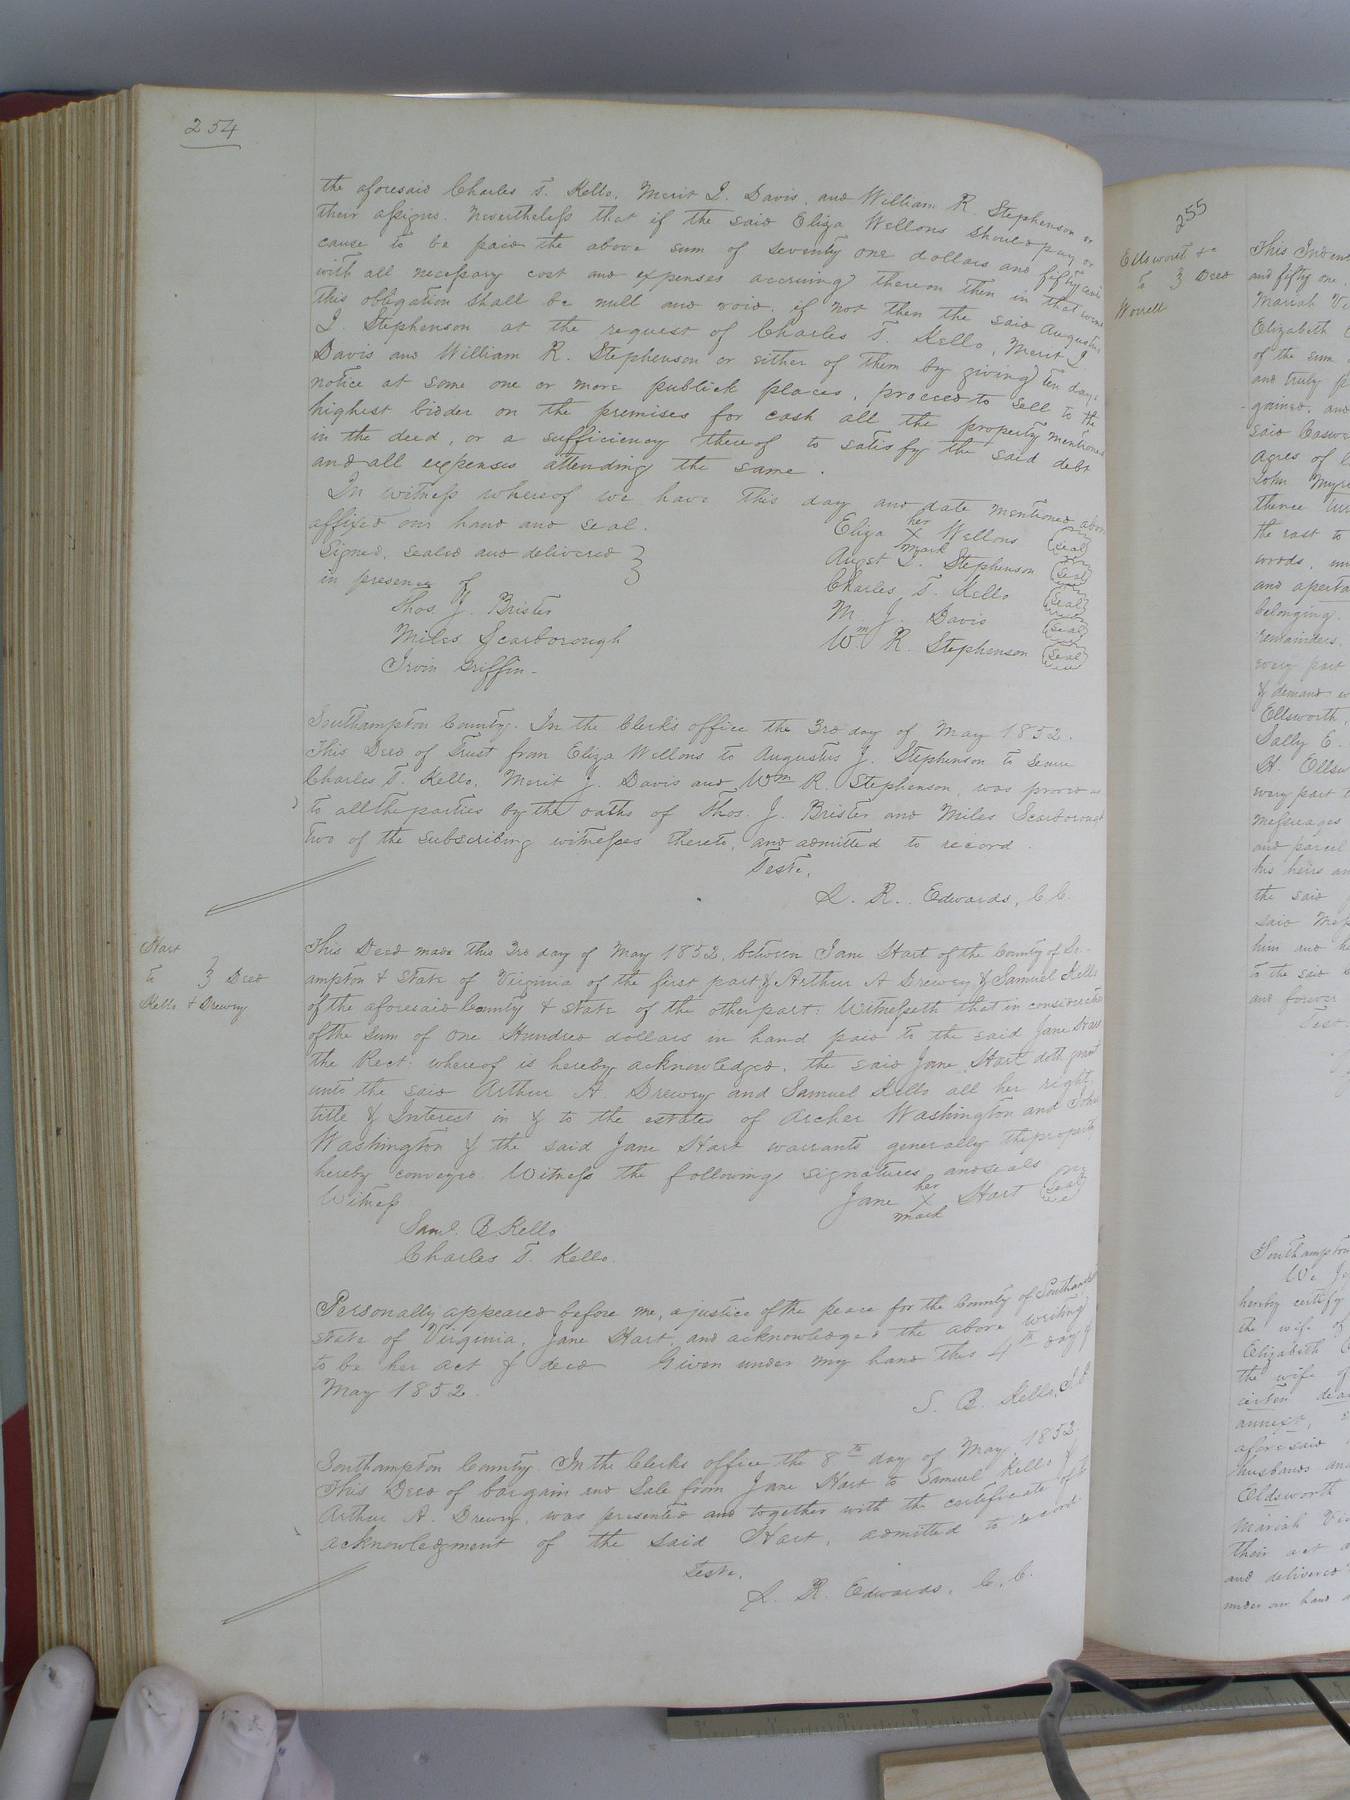 254
the aforesaid Charles T. Kello, Merit J. Davis, and William R. Stephenson or
their assigns. Nevertheless that if the said Eliza Wellons should pay or
cause to be paid the above sum of seventy one dollars and fifty cents
with all necessary cost and expenses accruing thereon then in that
this obligation shall be null and void, if not then the said Augustus
J. Stephenson at the request of Charles T. Kello, Merit J.
Davis and William R. Stephenson or either of them by giving ten days
notice at some one or more publick places, proceed to sell to the
highest bidder on the premises for cash all the property mentioned
in the deed, or a sufficiency thereof to satisfy the said debt
and all expenses attending the same.
In witness whereof we have this day and date mentioned above
affixed our hand and seal.
Signed, sealed and delivered
in presence of
Thos J. Brister
Miles Scarborough
Irvin Griffin
Eliza her X mark Wellons (seal)
Augst J. Stephenson (seal)
Charles T. Kello (seal)
M J. Davis (seal)
Wm R. Stephenson (seal)
Southampton County. In the Clerk's office the 3rd day of May 1852.
This Deed of Trust from Eliza Wellons to Augustus J. Stephenson to secure
Charles T. Kello, Merit J. Davis and Wm R. Stephenson, was proved as
to all the parties by the oaths of Thos. J. Brister and Miles Scarborough
two of the subscribing witnesses thereto, and admitted to record.
Teste,
L. R. Edwards, C. C.
Hart
to } Deed
Kello & Drewry
This Deed made this 3rd day of May 1852, between Jane Hart of the County of So-
ampton & State of Virginia of the first part & Arthur A Drewry & Samuel Kello
of the aforesaid County & State of the other part: Witnesseth that in consideration
of the sum of One Hundred dollars in hand paid to the said Jane Hart
the Rect. whereof is hereby acknowledged, the said Jane Hart doth grant
unto the said Arthur A. Drewry and Samuel Kello all her right
title & Interest in & to the estates of Archer Washington and John
Washington & the said Jane Hart warrants generally the property
hereby conveyed. Witness the following signatures and seals
Witness
Jane her X mark Hart (seal)
Saml. B Kello
Charles T. Kello.
Personally appeared before me, a justice of the peace for the County of Southampton
State of Virginia, Jane Hart, and acknowledged the above writing
to be her act & deed Given under my hand this 4th day of
May 1852.
S. B. Kello, J. P.
Southampton County. In the Clerks office the 8th day of May, 1852.
This Deed of bargain and Sale from Jane Hart to Samuel Kello &
Arthur A. Drewry, was presented and together with the certificate of the
acknowledgment of the said Hart, admitted to record.
Teste,
L. R. Edwards, C. C.
255
Ellsworth &c
to } Deed
Worrell
This Indent
and fifty one.
Mariah Vi
Elizabeth
of the sum
and truly p
gained, and
said Casw
Acres of l
John Myri
thence
the east to
woods,
and aperta
belonging.
remainders,
every part
& demand
Ellsworth,
Sally E.
H. Ellsw
every part
messuages
and parcel
his heirs an
the said
said
him and he
to the said
and forever
Test
Southampton
We Ja
hereby certify
the wife of
Elizabeth
the wife of
certain dee
annexed,
aforesaid
husbands and
Ellsworth
Mariah Vi
their act a
and delivered
under our hand a